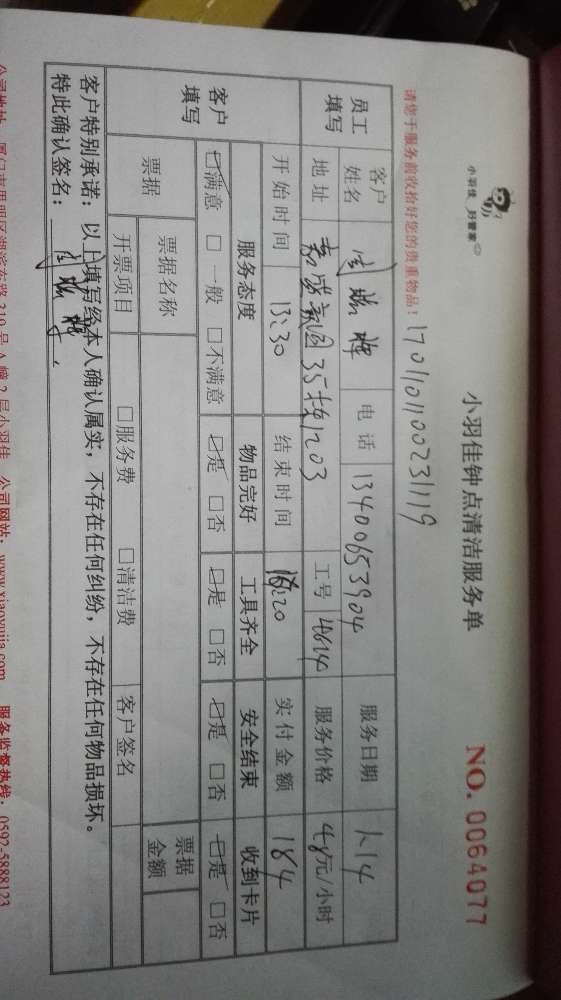 小羽佳 好管家
小羽佳钟点清洁服务单
NO. 0064077
请您于服务前收拾好您的贵重物品！ 17011010023 1119
员工填写 客户姓名 电话 13400653904 服务日期 1.14
地址 嘉盛豪园35栋1203 工号 4614 服务价格 48元/小时
开始时间 13:30 结束时间 16:20 实付金额 184
客户填写 服务态度 物品完好 工具齐全 安全结束 收到卡片
☑满意 □一般 □不满意 ☑是 □否 ☑是 □否 ☑是 □否 ☑是 □否
票据 票据名称 票据金额
开票项目 □服务费 □清洁费 客户签名
客户特别承诺：以上填写经本人确认属实，不存在任何纠纷，不存在任何物品损坏。
特此确认签名：
公司地址：厦门市思明区湖滨东路319号A幢2层小羽佳 公司网站：www.xiaoyujia.com 服务监督热线：0592-5888123